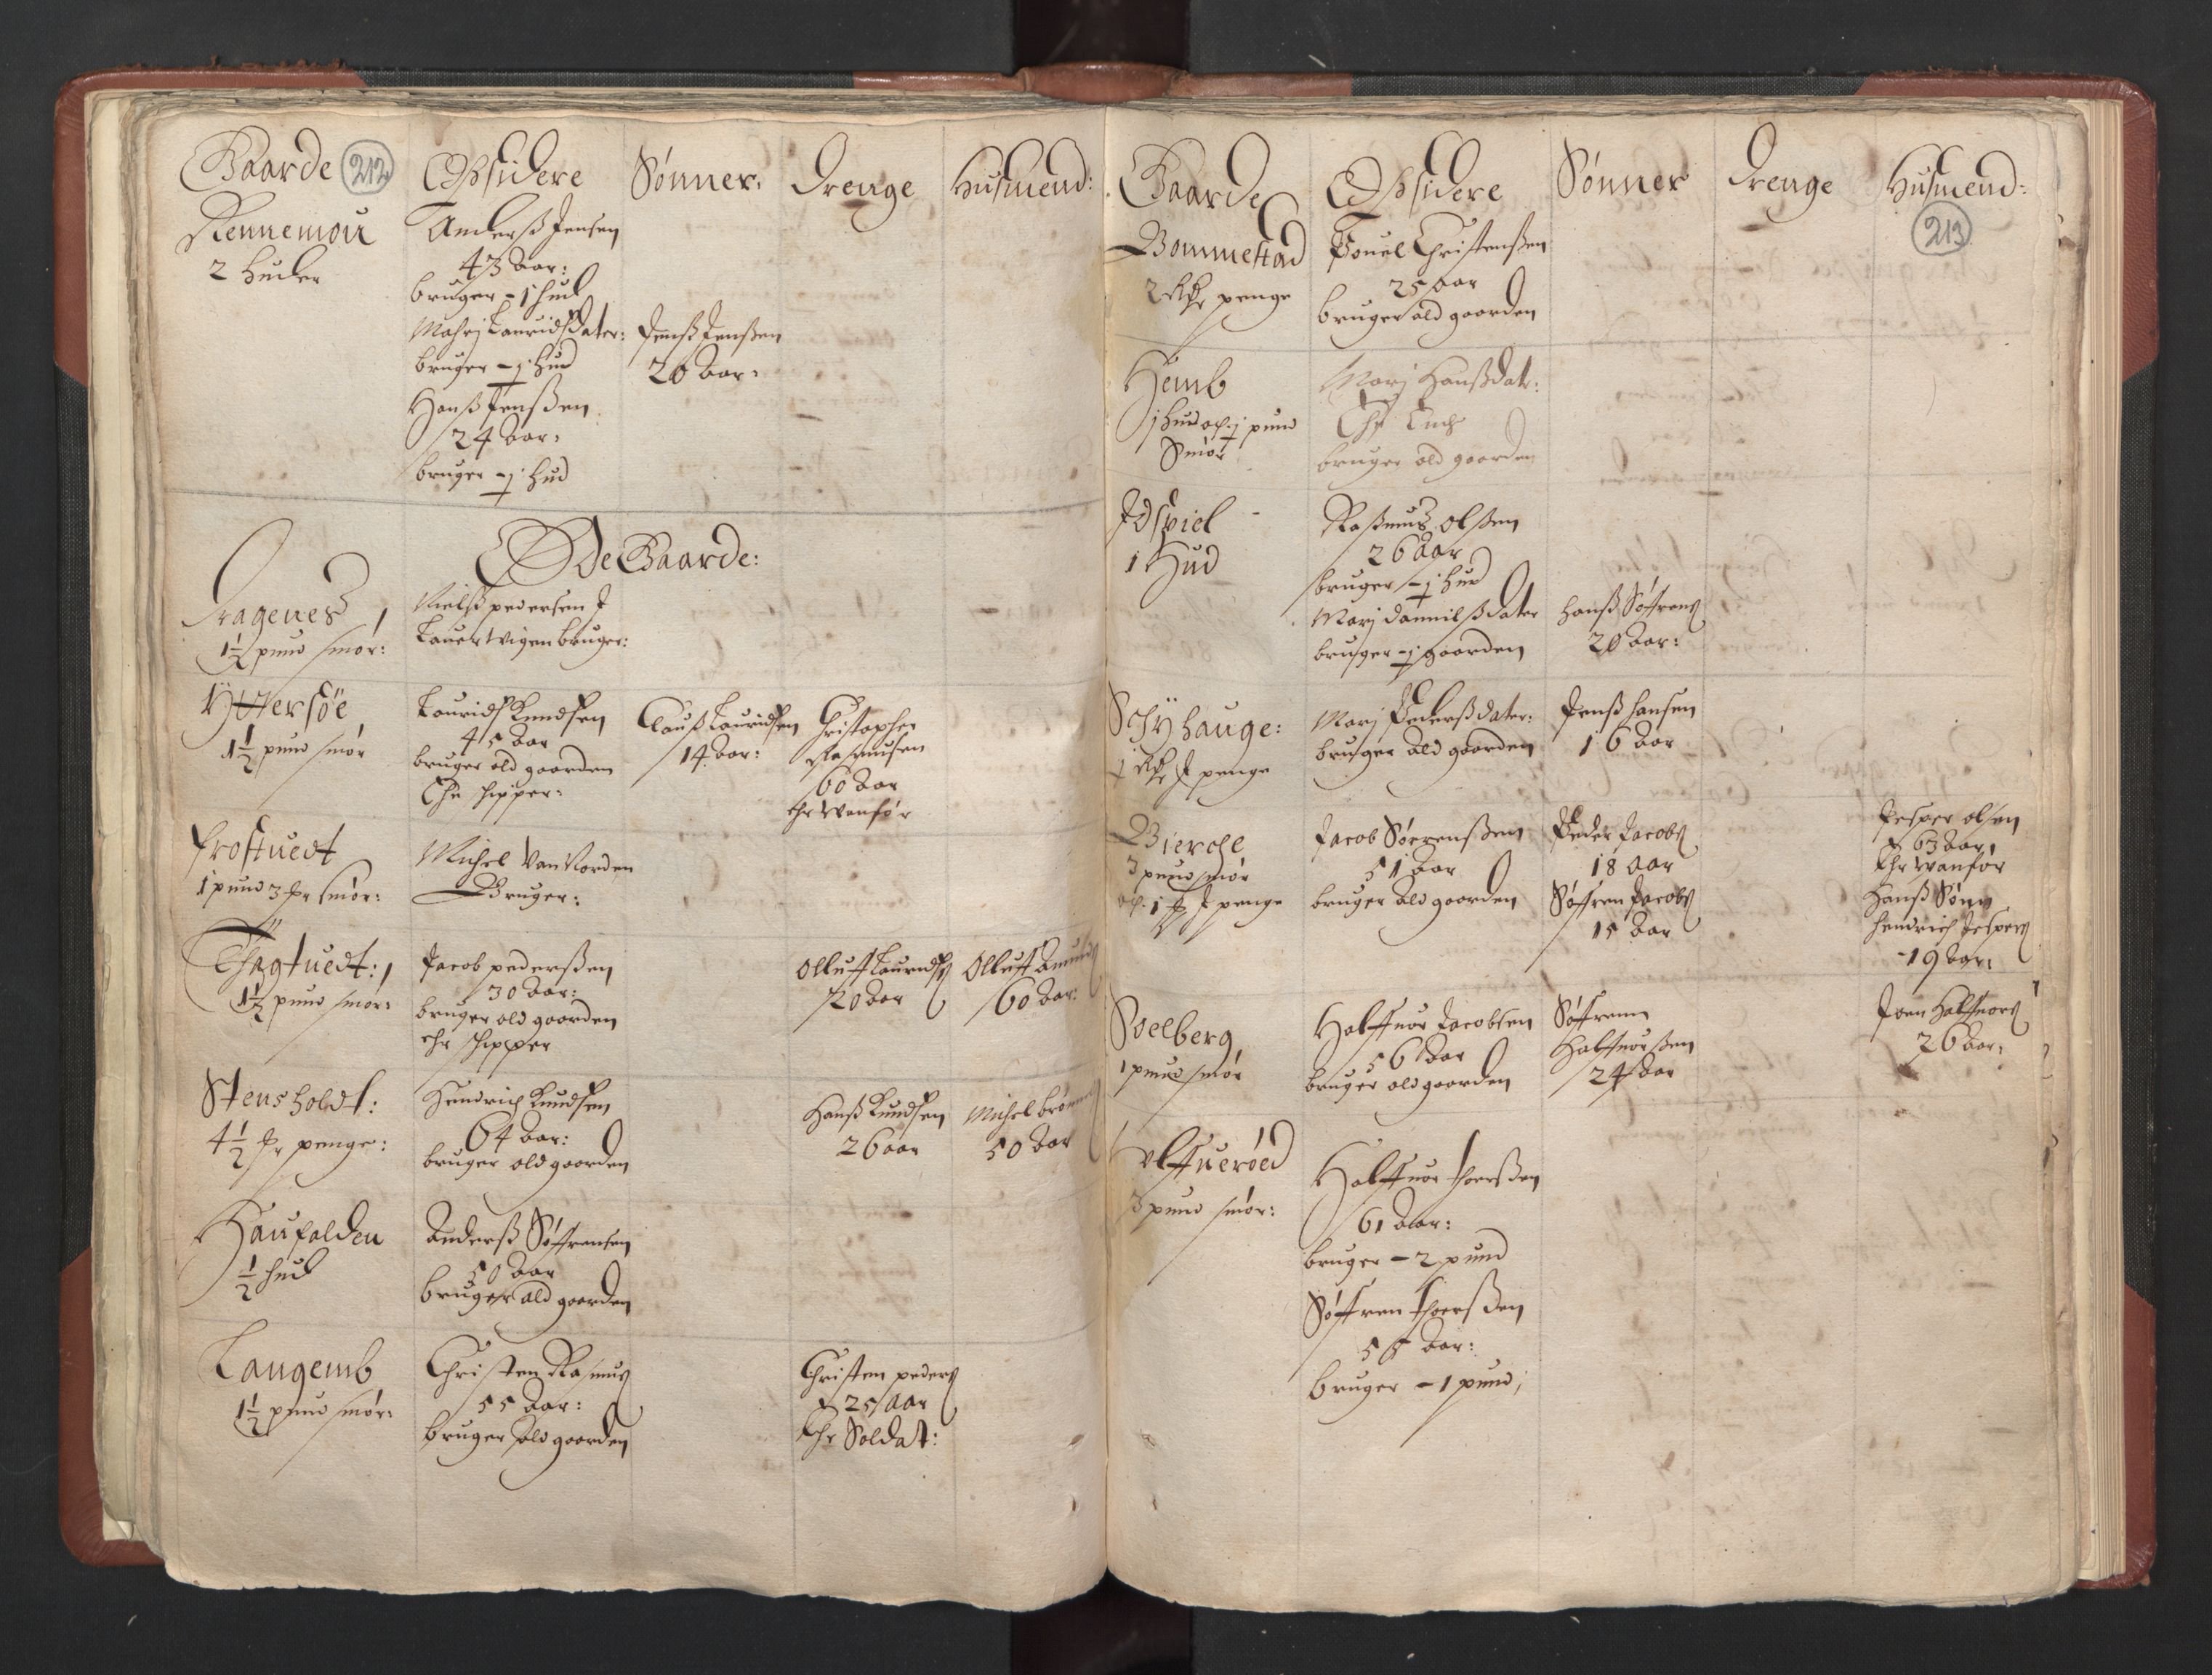 Gaarde 212 Opsidere Sønner. Drenge Husmend:
Rennemou
2 huder
Anderß Jensen
43 Aar:
bruger - ½ hud
Mahrj Lauridsdater:
bruger - ½ hud
Jenß Jenßen
20 Aar:
Hanß Jenßen
24 Aar:
bruger - ½ hud
Øde Gaarde:
Dragenes
1½ pund smør:
Nielß pedersen I
Lauer wigen bruger:
Yttersøe
1½ pund smør
Lauridß Knudsen
45 Aar
bruger ald gaarden
Ehr schipper:
Clauß Lauridsen
14 Aar:
Christopher
Rasmusen
60 Aar
ehr wanfør
Frostuedt
1 pund 3 smør:
Michel Van Norden
Bruger:
Thagtuedt:
1½ pund smør:
Jacob pederßen
30 Aar:
bruger ald gaarden
ehr schipper
Olluff Lauridß
20 Aar
Olluff Amundß
60 Aar:
Stensholdt:
4½ penge:
Hendrich Knudsen
64 Aar:
bruger ald gaarden
Hanß Knudsen
26 aar
Michel
50 Aar
Haufalden
½ hud
Anderß Søffrensen
50 Aar
bruger ald gaarden
Langemb
1½ pund smør:
Christen Rasmuß
55 Aar:
bruger ald gaarden
Christen pederß
25 Aar
Ehr Soldat:
Gaarde Opsidere Sønner Drenge Husmend:
213
Bommestad
2 penge
Pouel Christenßen
25 Aar
bruger ald gaarden
Hemb
1 hud och ½ pund
Smør
Marj Hanßdater:
Ehr Enche
bruger ald gaarden
Idspiel
1 Hud
Raßmus olßen
26 Aar
bruger - ½ hud
Marj Dannilßdater
bruger - ½ gaarden
Hanß Søfrenß
20 Aar:
Schÿhauge:
penge
Marj Pederßdater:
bruger ald gaarden
Jenß hansen
16 Aar
Bierche
3 pund smør
och 1 penge
Jacob Søerenßen
51 Aar
bruger ald gaarden
Peder Jacobß
18 aar
Søffren Jacobß
15 Aar
Jesper olsen
63 Aar,
Ehr wanfør
Hanß Sønn
hendrich Jesperß
- 19 Aar:
Soelberg
1 pund smør
Halffuor Jacobsen
56 Aar
bruger ald gaarden
Søffrenn
Halffuorßen
24 Aar
Joen Halffuorß
26 Aar:
Ulffuerøed
3 pund smør:
Halffuor Thoerßen
61 Aar:
bruger - 2 pund
Søffren Thoerßen
56 Aar:
bruger - 1 pund;